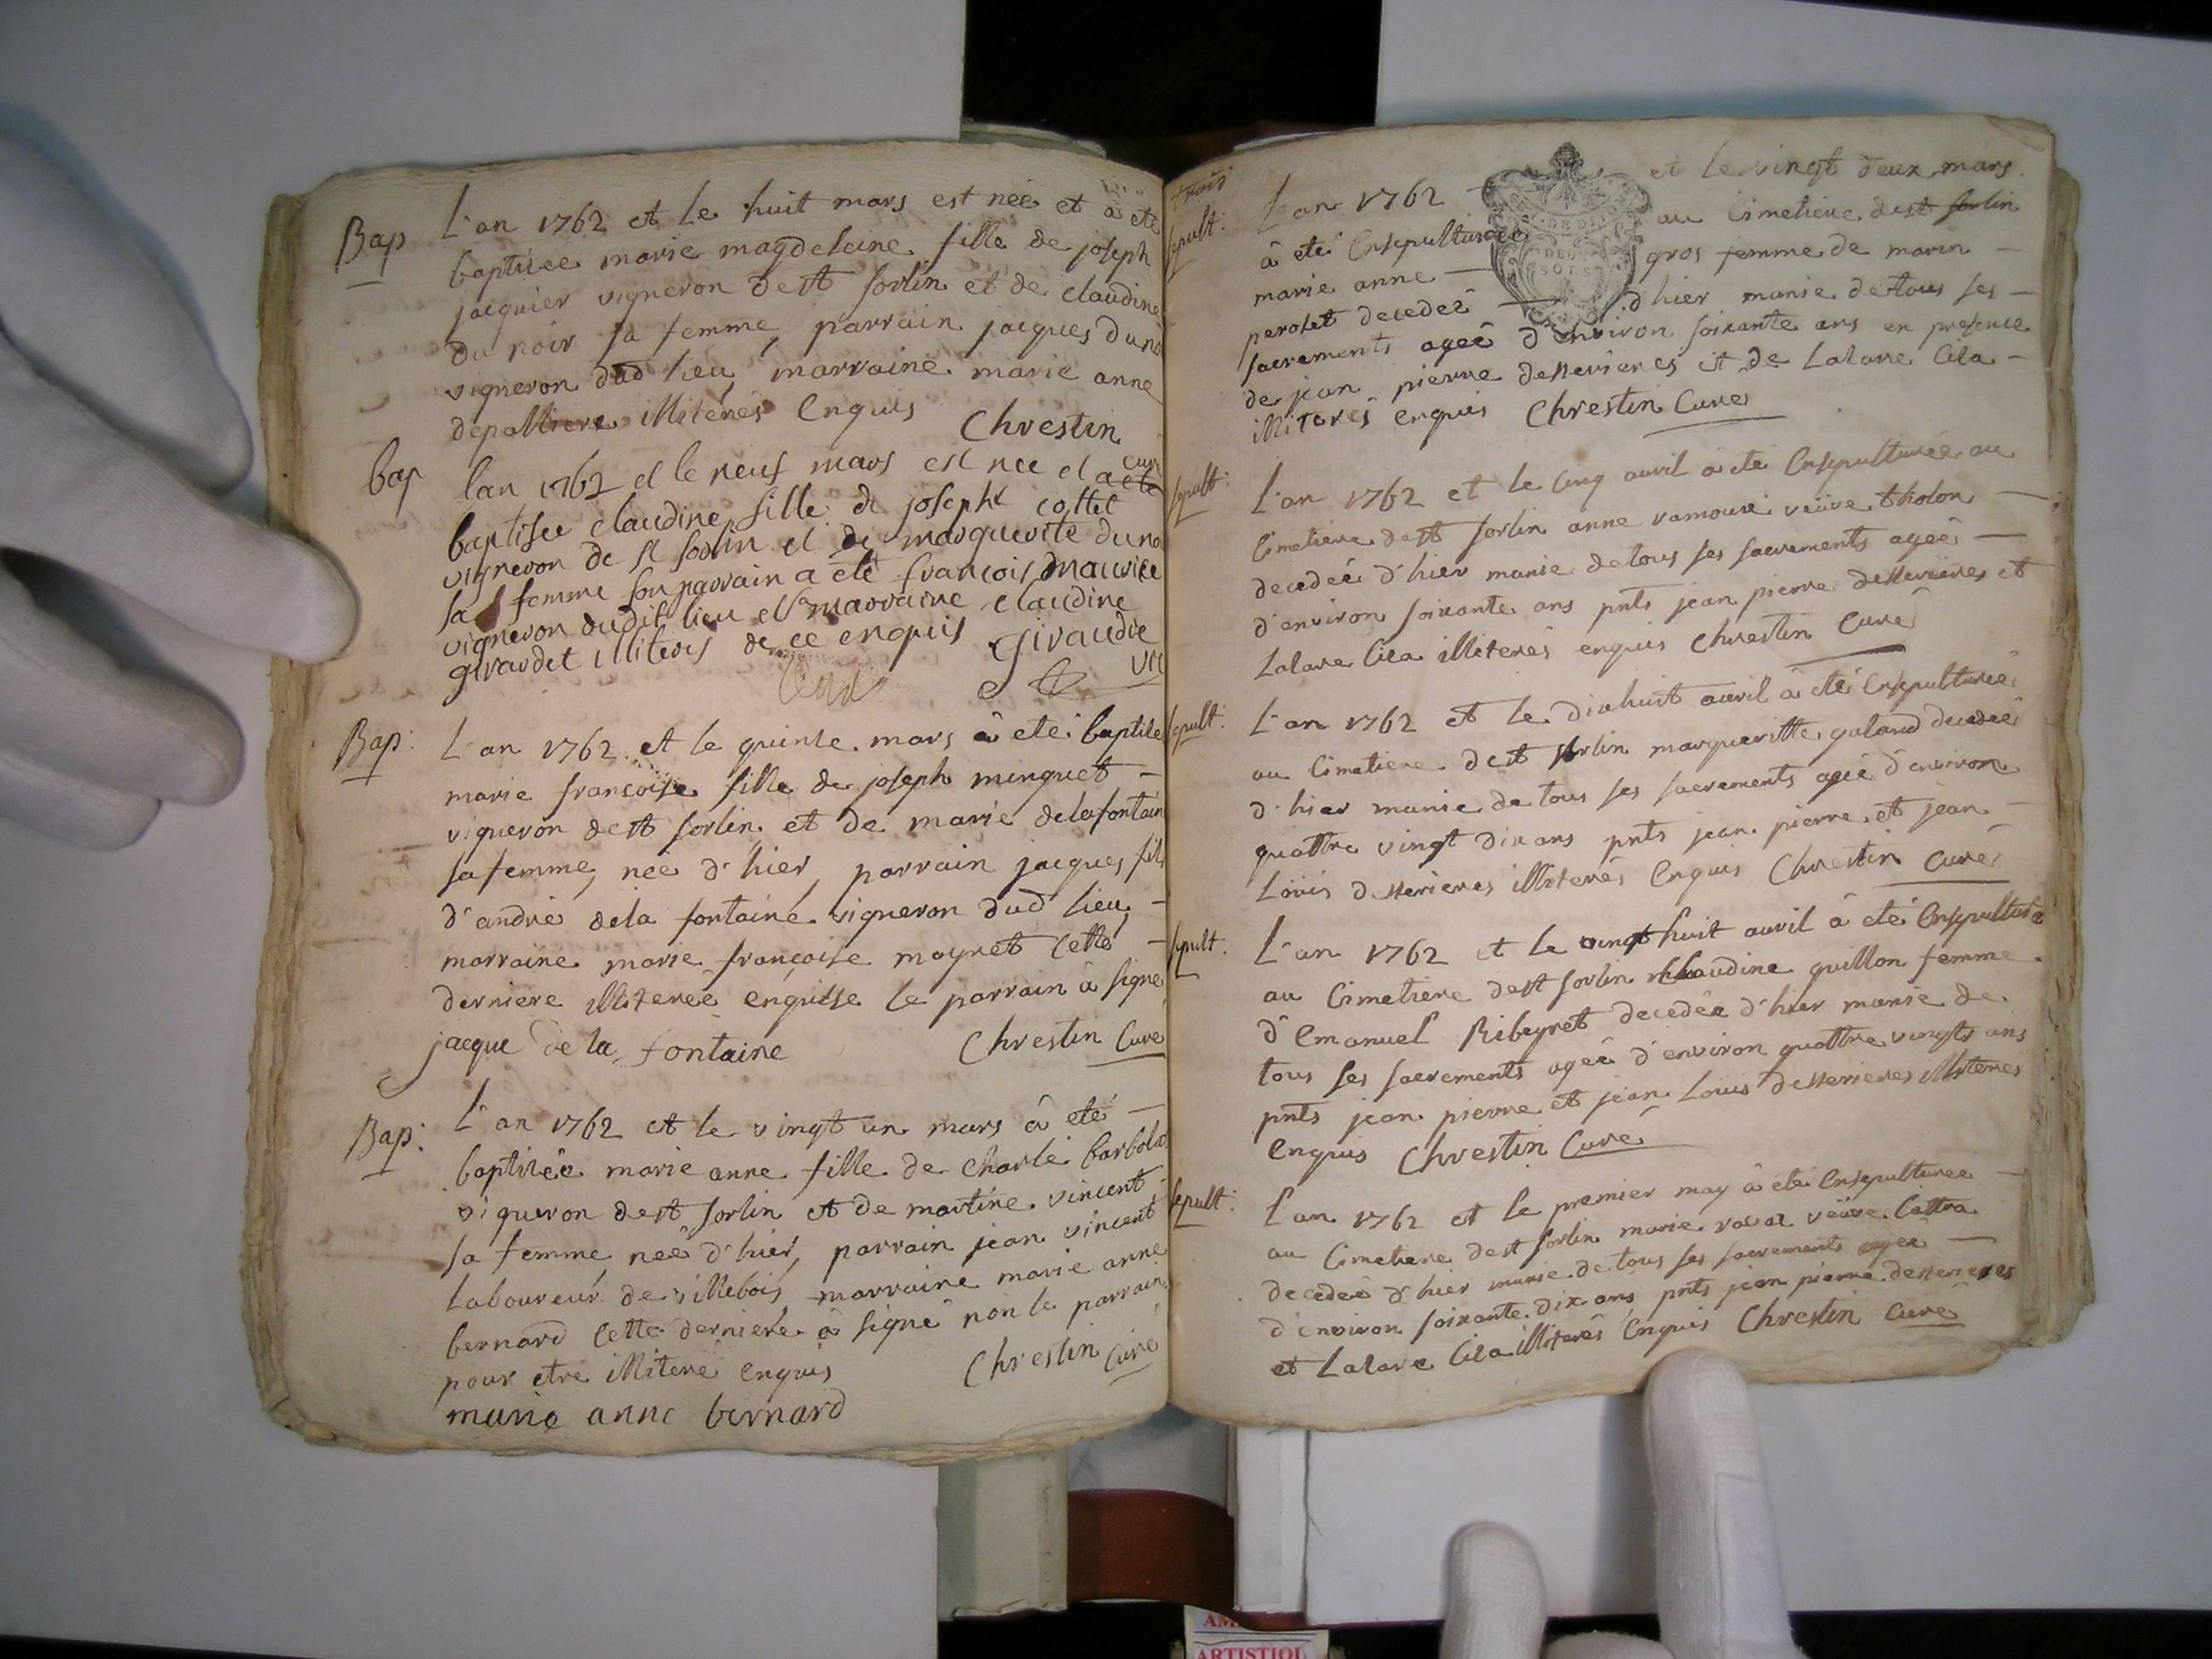 Bap
L'an 1762 et le huit mars est née et à eté
baptisée marie magdeleine fille de joseph
jacquier vigneron de st sorlin et de claudine
du noir sa femme, parrain jacques duno
vigneron dud lieu, marraine marie anne
depalliere illiterés enquis Chrestin
curé
bap
lan 1762 et le neuf mars est nee et a ete
baptisee claudine fille de joseph cottet
vigneron de st sorlin et de marguerite duno
sa femme son parrain a eté françois maurice
vigneron dudit lieu et sa marraine claudine
girardet illiteris de ce enquis Giraudie
vic
Bap:
L'an 1762 et le quinze mars à eté baptisé
marie francoise fille de joseph minguet -
vigneron de st sorlin et de marie delafontain
sa femme, née d'hier, parrain jacques fils
d'andré dela fontaine vigneron dud lieu, -
marraine marie françoise moyret cette -
derniere illiterée enquise le parrain à signé
jacque de la fontaine Chrestin Curé
Bap:
L'an 1762 et le vingt un mars à eté -
baptisée marie anne fille de Charle barbolat
vigneron de st sorlin et de martine vincent
sa femme née d'hier, parrain jean vincent
laboureur de villebois, marraine marie anne
bernard cette derniere à signé non le parrain
pour etre illiteré enquis Chrestin Curé
marie anne bernard
trois
sepult:
L'an 1762 - et le vingt deux mars
à eté Ensepulturée au Cimetiere de st sorlin
marie anne - gros femme de marin -
perolet decedeé - d'hier munie de tous ses -
sacrements ageé d'environ soixante ans en presence
de jean pierre desserieres et de Lalare Cila -
illiterés enquis Chrestin Curé
sepult:
L'an 1762 et le cinq avril à eté Ensepulturée au
Cimetiere de st sorlin anne ramoure veuve tholon -
decedeé d'hier munie de tous ses sacrements ageé -
d'environ soixante ans pnts jean pierre desserieres et
Lalare Cila illiterés enquis Chrestin Curé
sepult:
L'an 1762 et le dixhuit avril à eté Ensepulturée
au Cimetiere de st sorlin marguerite galand decedeé
d'hier munie de tous ses sacrements ageé d'environ
quattre vingt dix ans pnts jean pierre et jean -
Loüis desserieres illiterés Enquis Chrestin Curé
sepult:
L'an 1762 et le vingt huit avril à eté Ensepulturé
au Cimetiere de st sorlin claudine guillon femme
d'Emanuel Ribeyret decedeé d'hier munie de
tous ses sacrements ageé d'environ quattre vingts ans
pnts jean pierre et jean Loüis desserieres illiterés
Enquis Chrestin Curé
sepult:
L'an 1762 et le premier may à eté Ensepulturee -
au Cimetiere de st sorlin marie veuve Cattra
decedeé d'hier munie de tous ses sacrements ageé -
d'environ soixante dix ans pnts jean pierre desserieres
et Lalare Cila illiterés Enquis Chrestin Curé
ARTISTIQU